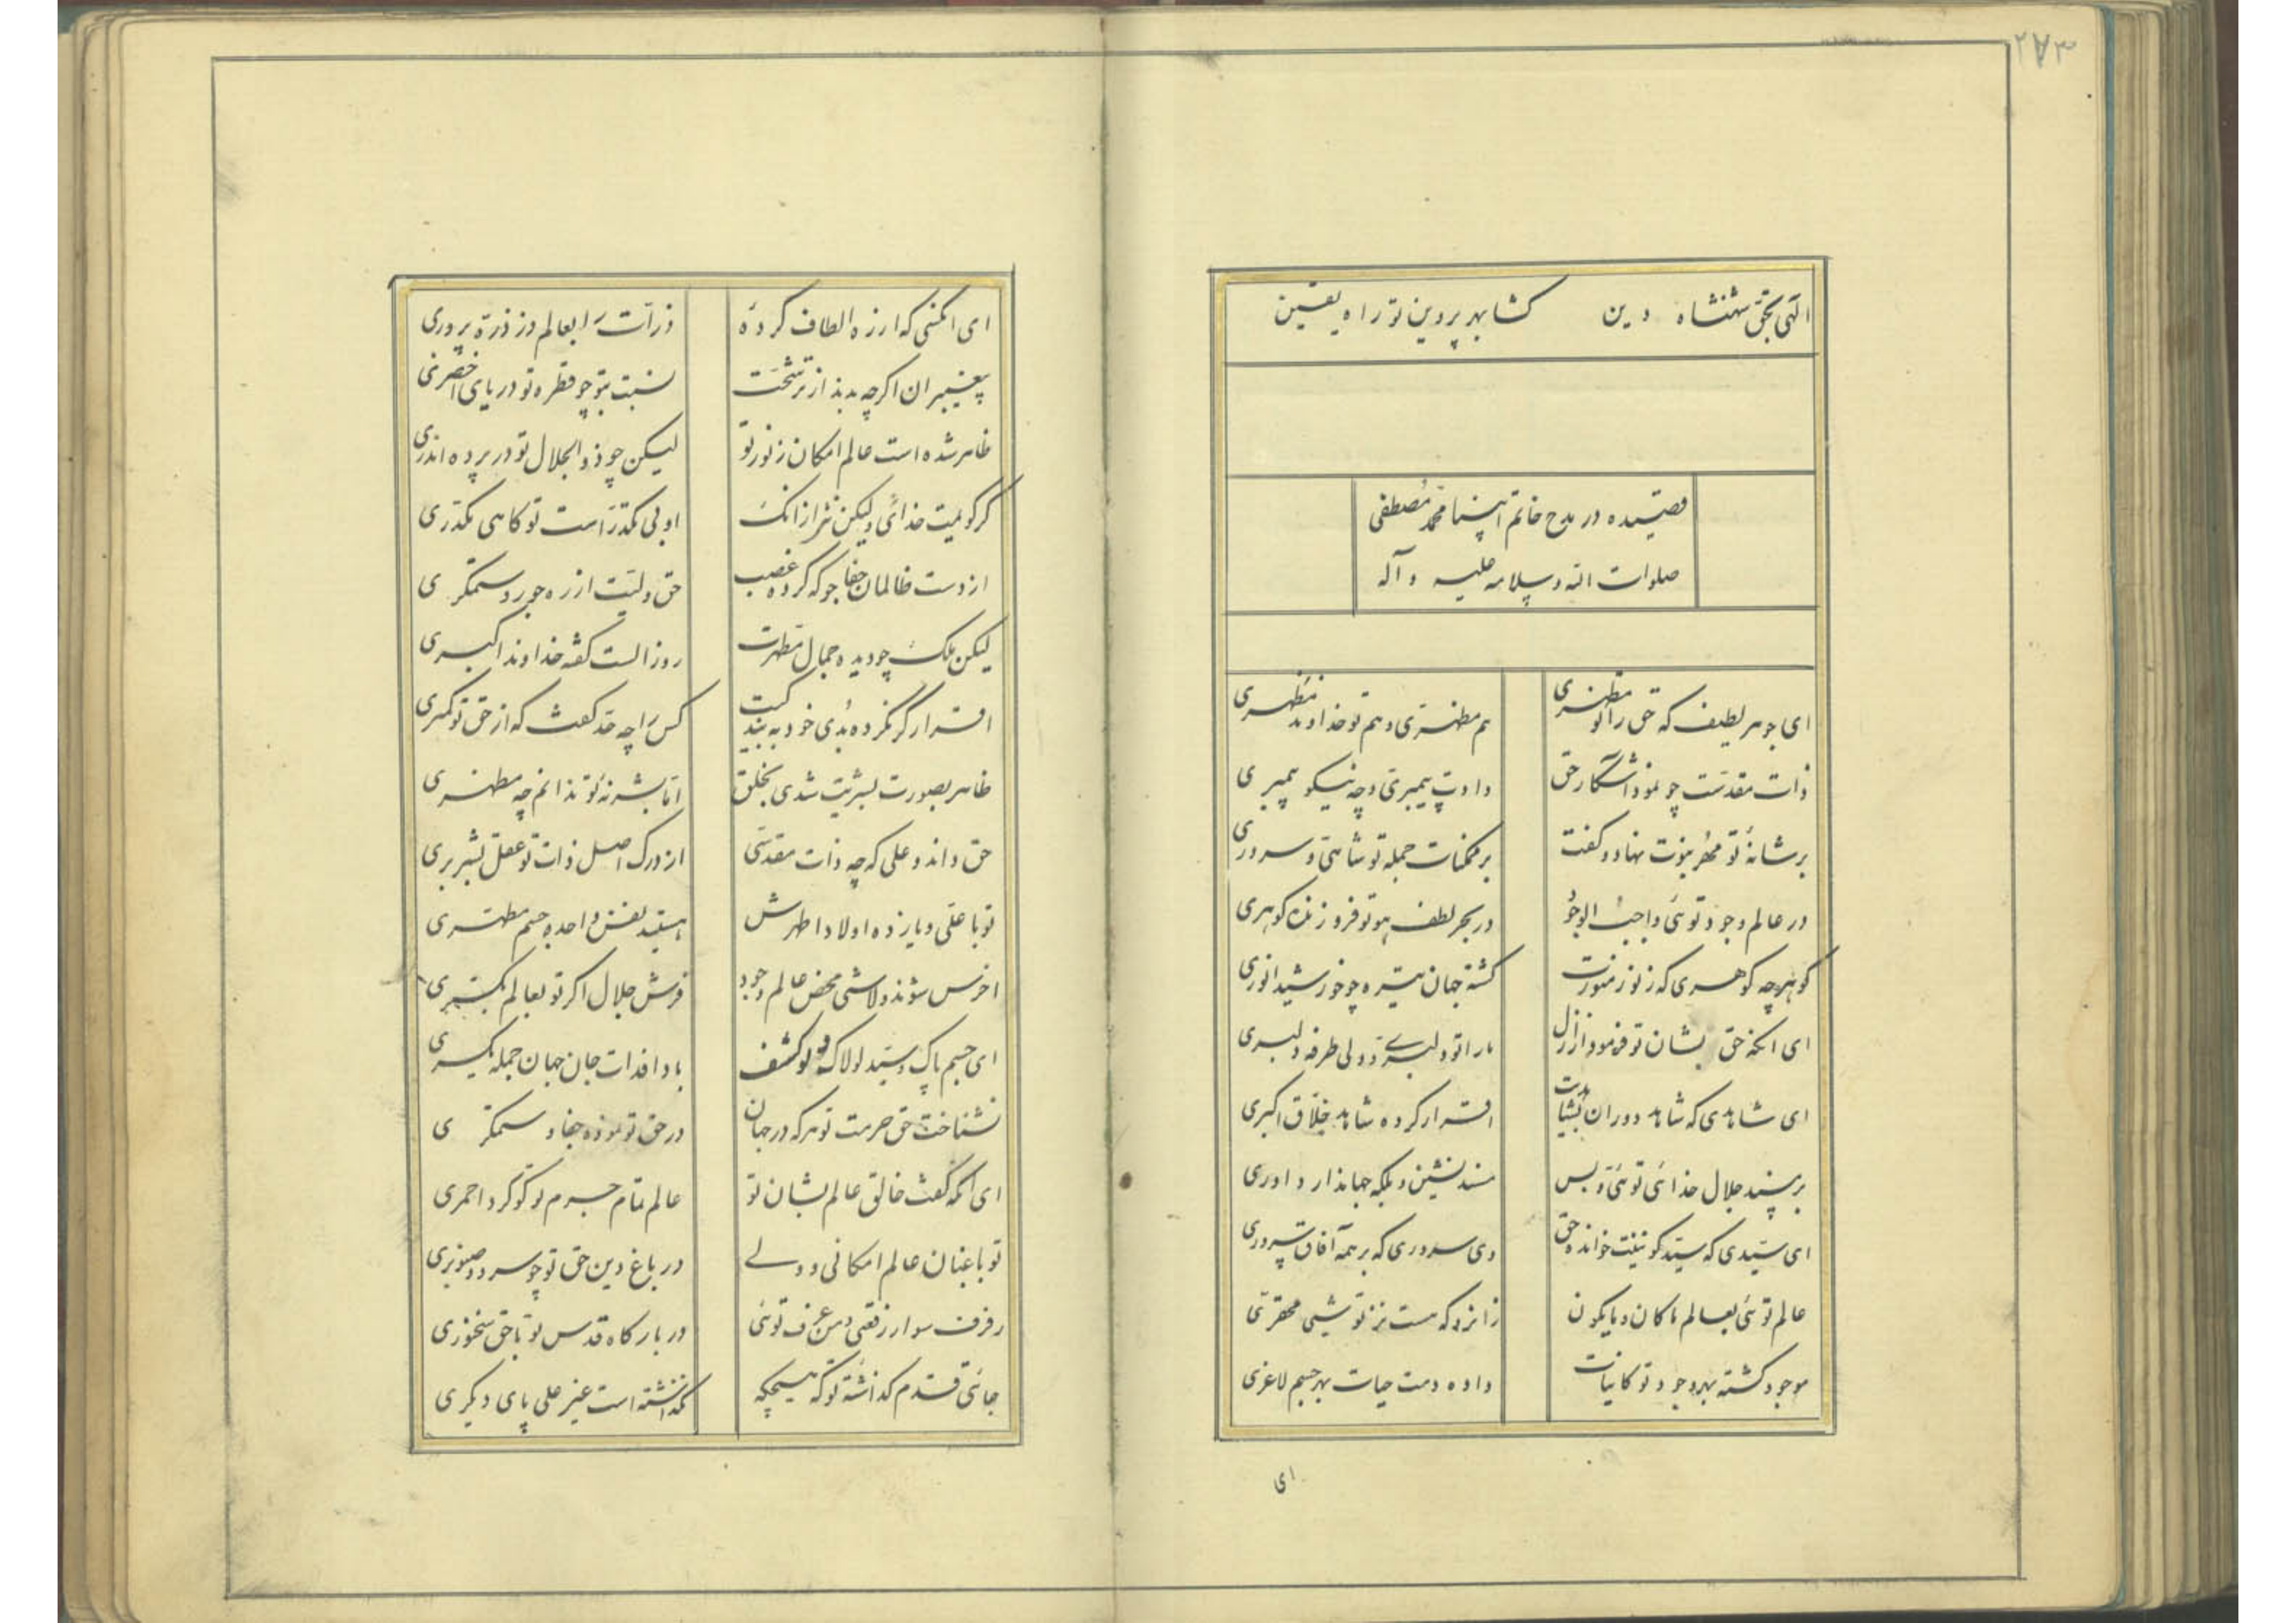 ۲۷۳
الهی بحق شهنشاه دین کشا بهر پروین تو راه یقین
قصیده در مدح خاتم انبیا محمد مصطفی
صلوات الله و سلامه علیه و آله
ای جوهر لطیف که حق را تو مظهری هم مظهری و هم تو خداوند مظهری
ذات مقدست چو نمود آشکار حق دادت پیمبری و چه نیکو پیمبری
بر شانهٔ تو مُهر نبوت نهاد و گفت بر ممکنات جمله تو شاهی و سروری
در عالم وجود توئی واجب الوجود در بحر لطف هو تو فروزنده گوهری
گوهر چه گوهری که ز نور منورت گشته جهان تیره چو خورشید انوری
ای آنکه حق بشان تو فرمود از ازل ما را تو دلبری و ولی طرفه دلبری
ای شاهدی که شاهد دوران اقرار کرده شاهد خلاق اکبری
بر مسند جلال خدائی توئی و بس مسند نشین و بلکه جهاندار داوری
ای سیدی که سید کونینت خوانده حق وی سروری که بر همه آفاق سروری
عالم توئی بعالم ما کان و ما یکون زانرو که هست نزد تو شیئی محقری
موجود گشته بهر وجود تو کاینات داده دمت حیات بهر جسم لاغری
ای
ای آنکسی که از ره الطاف کردهٔ ذرات را بعالم ذر ذره پروری
پیغمبران اگرچه بدند از ترشحت نسبت بتو چو قطره تو دریای اخضری
ظاهر شده است عالم امکان ز نور تو لیکن چو ذوالجلال تو در پرده اندری
گر گویمت خدائی ولیکن اولی مکدر است تو کاهی مکدری
از دست ظالمان جفاجو که کرده غصب حق ولیت از ره جور و ستمگری
لیکن ملک چو دیده جمال مطهرت روز الست گفته خداوند اکبری
اقرار گر نکرده بُدی خود به بندگیت کس را چه حد گفت که از حق تو کمتری
ظاهر بصورت بشریت شدی بخلق اما بشر نهٔ تو ندانم چه مظهری
حق داند و علی که چه ذات مقدسی از درک اصل ذات تو عقل بشر بری
تو با علی و یازده اولاد اطهرش هستید نفس واحده جسم مطهری
اخرس شوند و لاشی محض عالم وجود فرش جلال اگر تو بعالم بگستری
ای جسم پاک سید لولاک لو کشف بادا فدات جان جهان جمله یکسری
نشناخت حق حرمت تو هر که در جهان در حق تو نموده جفا و ستمگری
ای آنکه گفت خالق عالم بشان تو عالم تمام جسم تو گوگرد احمری
تو باغبان عالم امکانی و ولی در باغ دین حق تو چو سرو و صنوبری
رفرف سوار رفعتی و من عرف توئی در بارگاه قدس تو با حق سخنوری
جائی قدم گذاشتهٔ تو که هیچکه نگذاشته است غیر علی پای دیگری